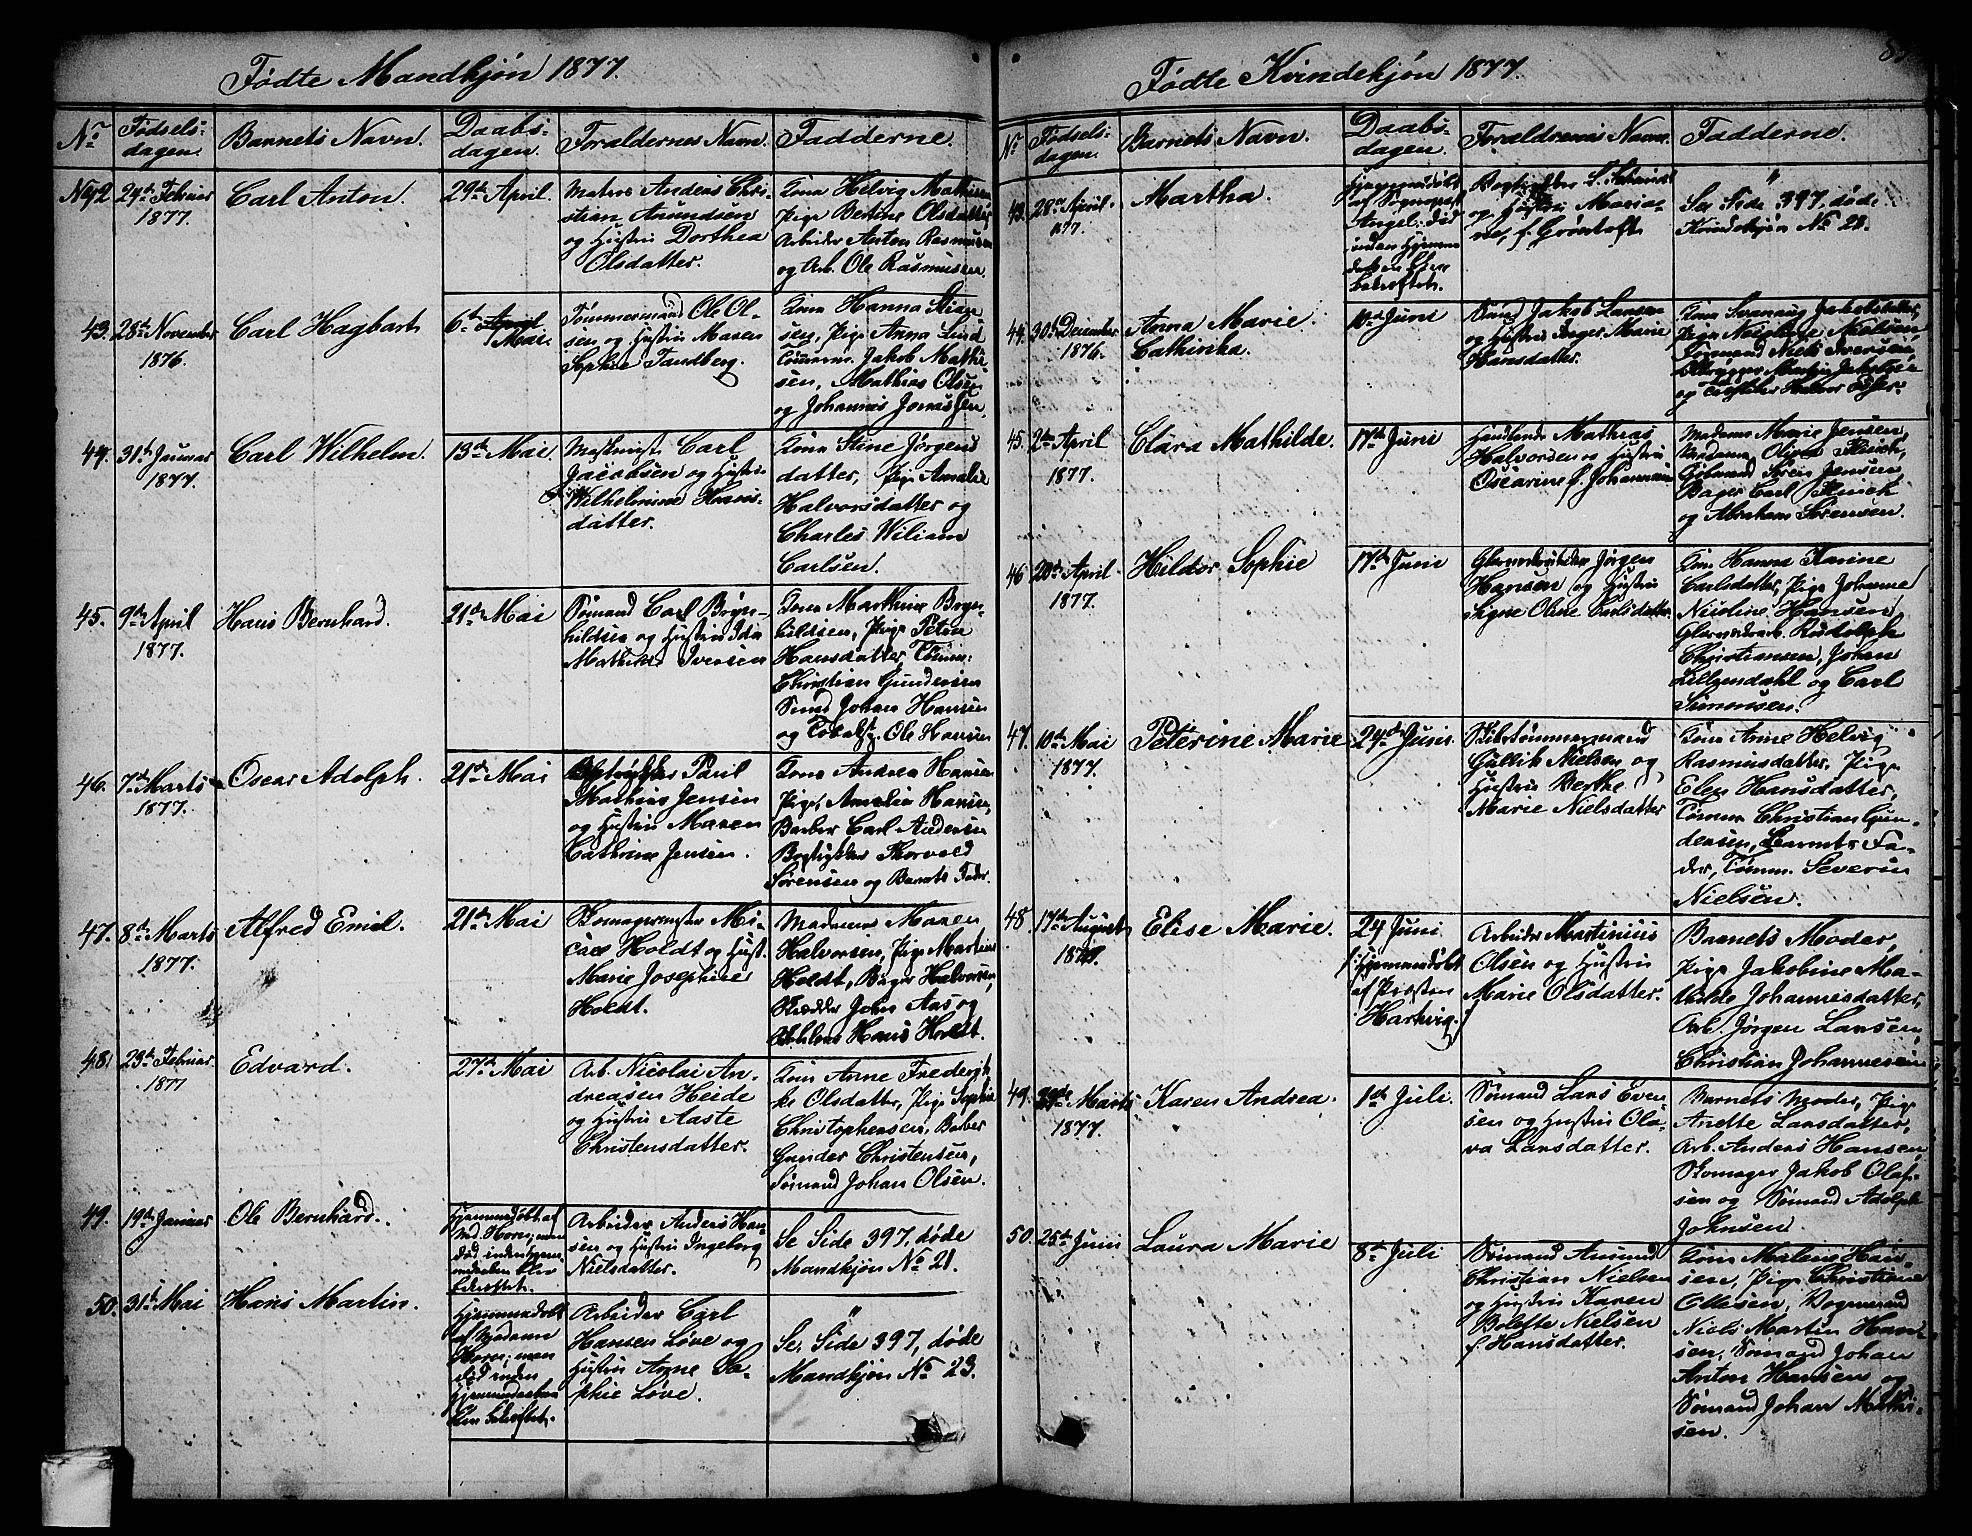 Fødte Mandkjøn 1877.
No
Fødsels-
dagen.
Barnets Navn.
Daabs-
dagen.
Foraldernes Navn.
Fadderne.
No 42
29de Februar
1877.
Carl Anton.
29de April.
Matros Anders Chri-
stian Amundsen
og Hustru Dorthea
Olsdatter.
Kona Helvig Mathisen
Pige Bertine Olsdatter,
Arbeider Anton Rasmussen
og Arb. Ole Rasmussen.
43.
28de November
1876.
Carl Hagbart
6te April
Mai.
Tømmermand Ole Ol-
sen og Hustru Maren
Sophie Tandberg.
Kona Hanna
sen, Pige Anna Lund
Tømmerm. Jakob Mathi-
sen, Mathias Olsen
og Johannes Jonassen.
44.
31te Januar
1877.
Carl Wilhelm.
13de Mai.
Maskinist Carl
Jacobsen og Hustru
Wilhelmine Hans-
datter.
Kona Stine Jørgens
datter, Pige Amalie
Halvorsdatter og
Charles Wiliam
Carlsen.
45.
9de April
1877.
Hans Bernhard.
21de Mai
Sømand Carl Bryn-
hildsen og Hustru Ida
Mathilde Iversen
Kona Marthine Bryn-
hildsen, Pige Petra
Hansdatter, Tømm.
Christian Gundersen
Smed Johan Hansen
og Ole Hansen
46.
7de Marts
1877.
Oscar Adolph.
21de Mai
Bogtrykker Paul
Mathias Jensen
og Hustru Maren
Cathrine Jensen.
Kona Andrea Hansen
Pige, Amalia Hansen,
Barber Carl Andersen
Bogtrykker Thorvald
Sørensen og Barnets Fader.
47.
8de Marts
1877.
Alfred Emil.
21de Mai
Skomagermester Mi-
cael Holdt og Hust.
Marie Josephine
Holdt.
Madame Maren
Halvorsen, Pige Martine
Holdt, Bager Halvorsen,
Skrædder John Aas og
Hans Holdt.
48.
23de Februar
1877
Edvard.
27de Mai
Arb. Nicolai An-
dreasen Heide
og Hustru Aaste
Christensdatter.
Kona Anne Fredrik-
ke Olsdatter, Pige Sophie
Christophersen, Barber
Gunder Christensen,
Sømand Johan Olsen.
49.
19de Januar
Ole Bernhard.
Hjemmedøbt af
Md. Horn; men
død inden Hjem-
medaaben blev
bekræftet.
Arbeider Anders Han-
sen og Hustru Ingeborg
Nielsdatter.
Se Side 397, døde
Mandkjøn No 21.
50.
31te Mai
Hans Martin.
Hjemmedøbt
af Madam
Horn; men
død inden
Hjemmedaaben
blev bekræftet.
Arbeider Carl
Hansen Løve og
Hustru Anne So-
phie Løve.
"
Se, Side 397, døde
Mandkjøn No 23.
Fødte Kvindekjøn 1877.
No
Fødsels-
dagen.
Barnets Navn.
Daabs-
dagen.
Foraldrenes Navn.
Fadderne.
43.
28de April.
1877.
Martha.
Hjemmedøbt
af Sognepræst
Angel; død
inden Hjemme
daaben blev
bekræftet.
Bogtrykker
og Hustru Maria-
ne, f. Grøntoft
"
Se Side 397, døde
Kvindekjøn No 28.
44.
30te December
1876.
Anna Marie
Cathinka.
10de Juni
Smed Jakob Larsen
og Hustru Inger Marie
Hansdatter.
Kona Svanaug Jakobsdatter,
Pige Nicoline Nielsen,
Sømand Niels Iversen,
Ølbrygger Martin Jakobsen
og
45.
2den April
1877.
Clara Mathilde.
17de Juni
Handlende Mathias
Halvorsen og Hustru
Oscarine f. Johannesen
Madame Marie Jensen,
Madame Olivia
Sømand Søren Jensen,
Bager Carl
og Abraham Sørensen.
46
20de April
1877.
Hildor Sophie
17de Juni
Glasværksarbeider Jørgen
Hansen og Hustru
Signe Oline Carlsdatter
Kona Hanna Karine
Carlsdatter, Pige Johanne
Nicoline Hansen,
Glasværksarb. Rudolph
Christiansen, Johan
Lillgendahl og Carl
Simonsen.
47.
10de Mai
1877.
Peterine Marie
24de Juni.
Skibstømmermand
Gullik Nielsen og
Hustru Berthe
Marie Nielsdatter
Kona Anne Helvig
Rasmusdatter, Pige
Elen Hansdatter,
Tømm. Christian Gun-
dersen, Barnets Fa-
der, Tømm. Severin
Nielsen.
48.
17de August
Elise Marie.
24 Juni.
Hjemmedøbt
af Præsten
Hartvig.
Arbeider Martinius
Olsen og Hustru
Marie Olsdatter.
Barnets Moder,
Pige Jakobine Ma-
thilde Johannesdatter,
Arb. Jørgen Larsen,
Christian Johannesen
49.
29de Marts
1877.
Karen Andrea.
1de Juli.
Sømand Lars Even
sen og Hustru Ola-
va Larsdatter.
Barnets Moder, Pige
Anette Larsdatter,
Arb. Anders Hansen,
Skomager Jakob Olaf-
sen og Sømand Adolph
Johnsen
50.
25de Juni
Laura Marie
8de Juli
Sømand Amund
Christian Nielsen
og Hustru Karen
Bolette Nielsen
f. Hansdatter.
Kona Marlene Han-
sen, Pige Christiane
Ottesen, Vognmand
Niels Martin Han-
sen, Sømand Johan
Anton Hansen og
Sømand Johan Mathi-
sen.